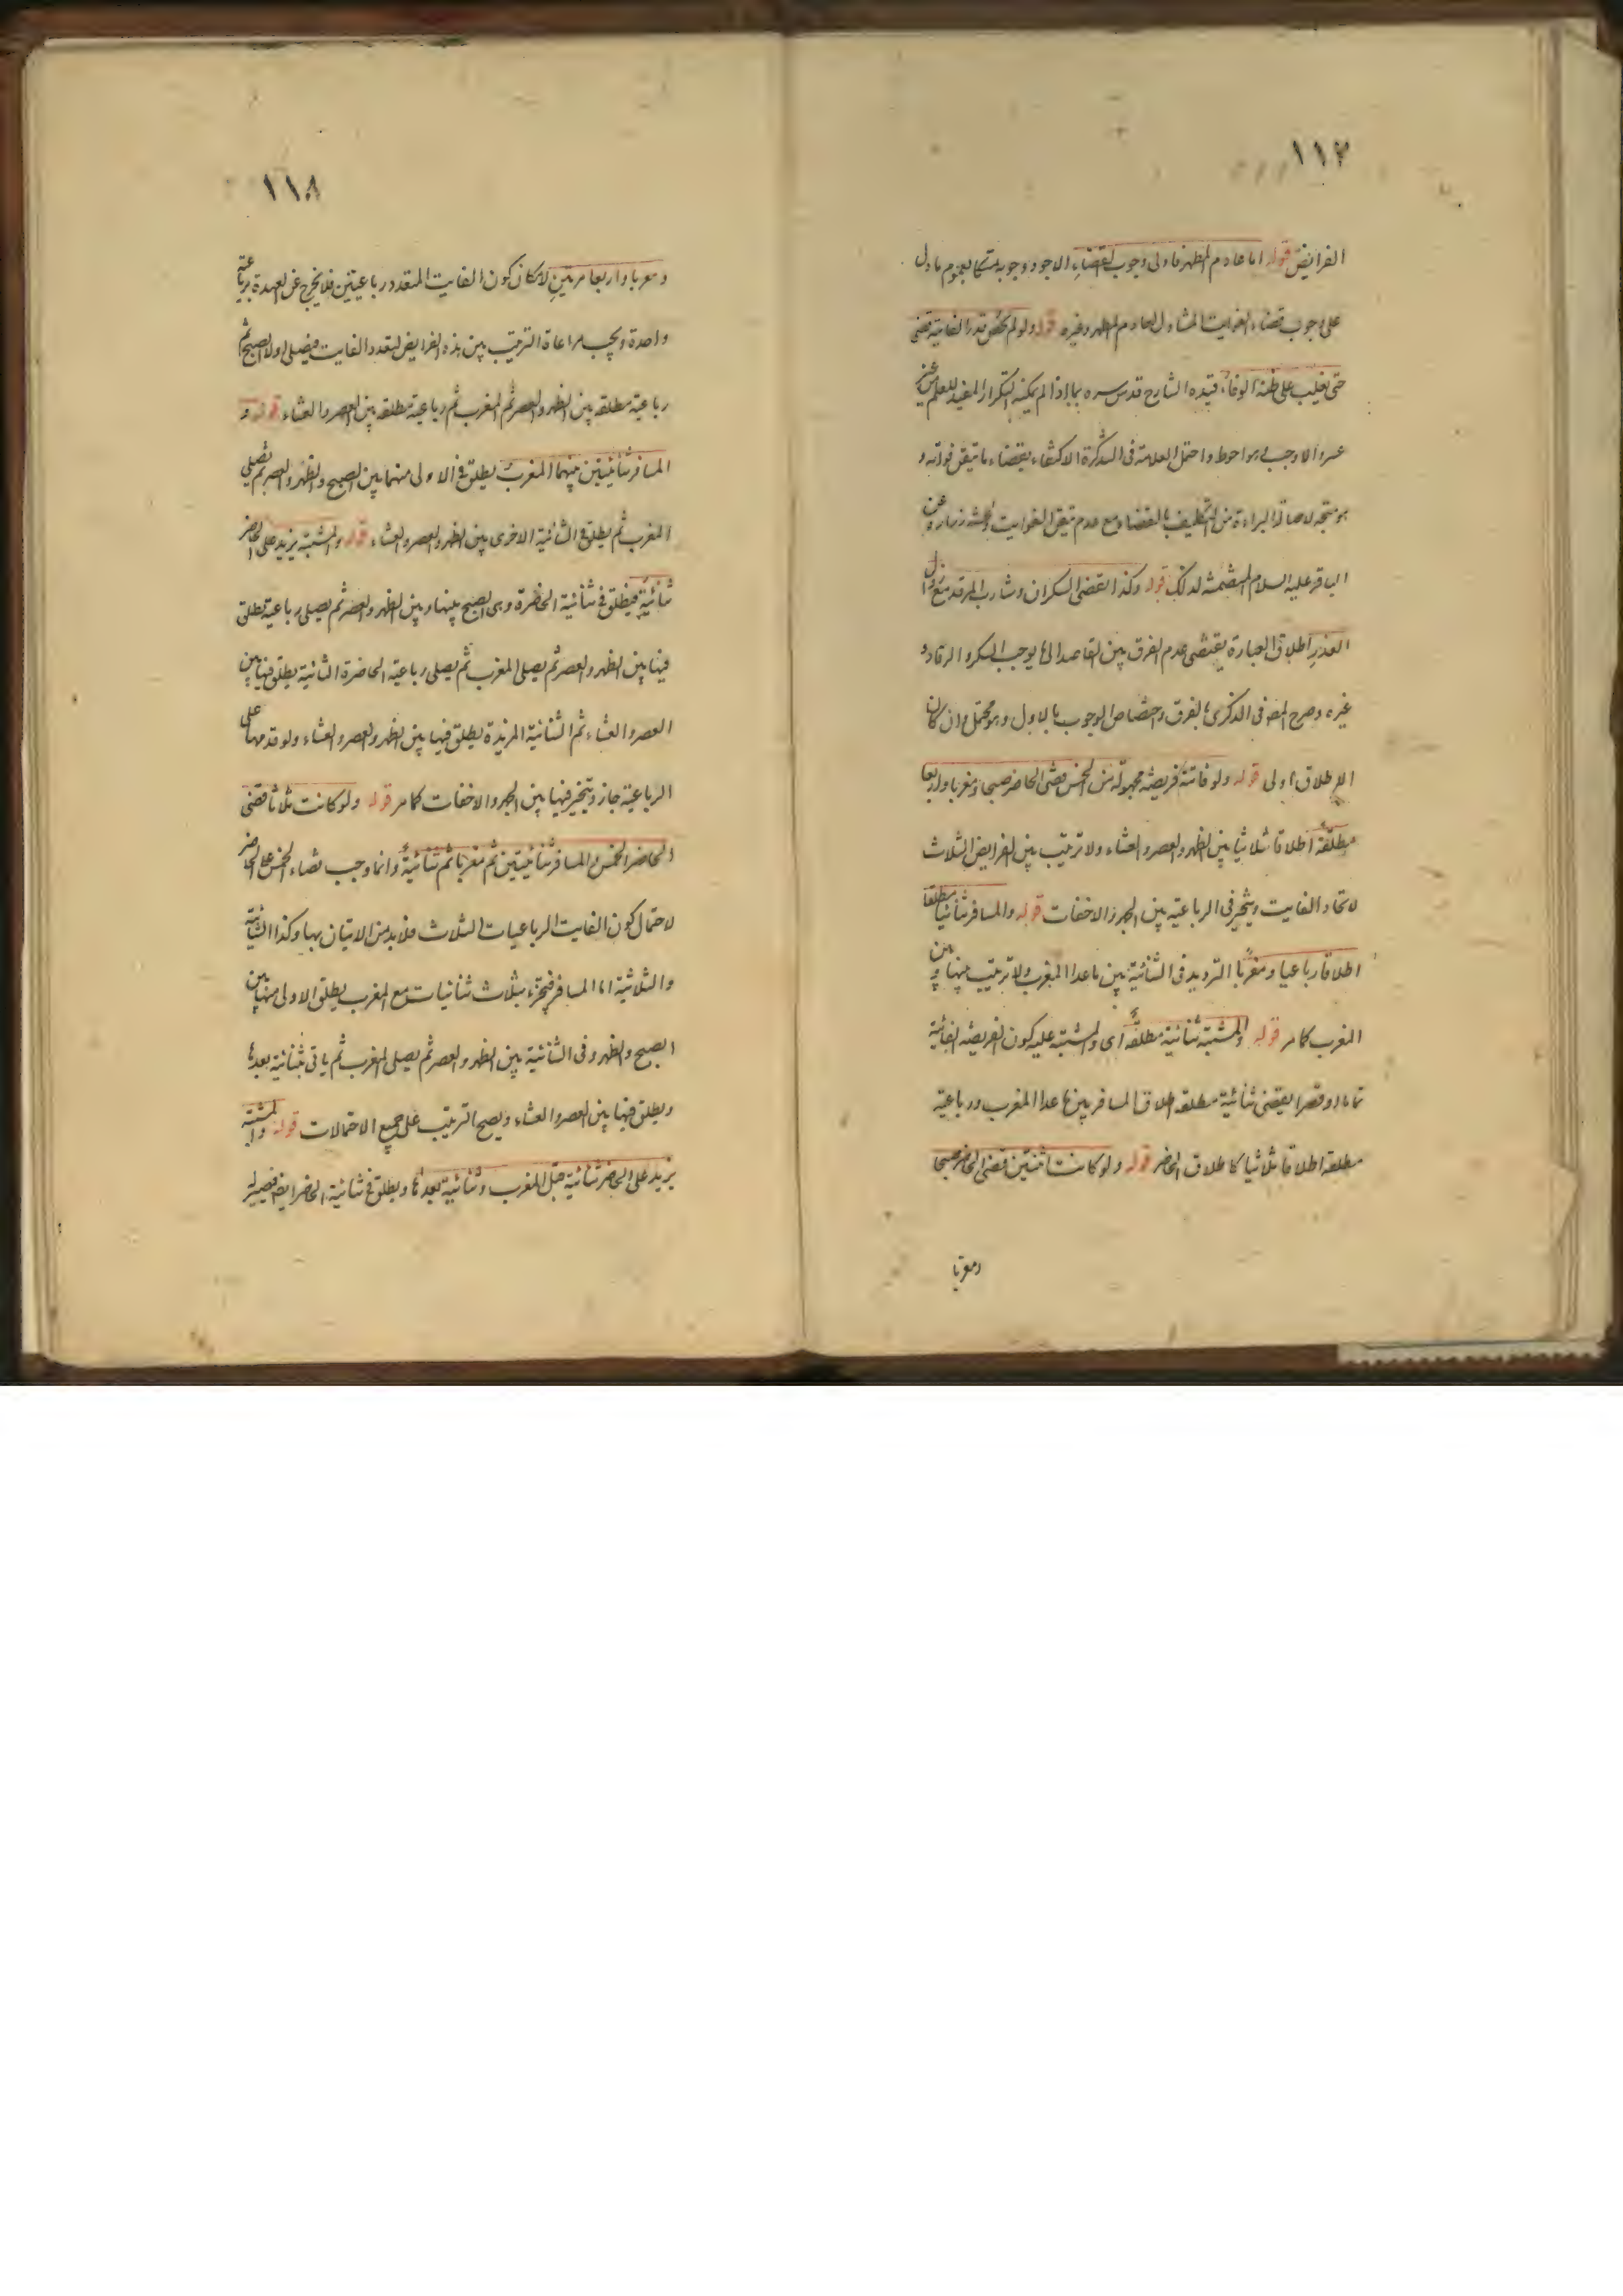 ١١٧
الفرايض قوله اما عادم المطهر فاولى وجوب القضاء الاجود وجوبه متمسكا بعموم ما دل
على وجوب قضاء الفوايت المتناول لعادم المطهر وغيره قوله ولو لم يحص قدر الفائتة قضى
حتى يغلب على ظنه الوفاء قيده الشارح قدس سره بما اذا لم يمكنه التكرار المفيد للعلم من غير
عسر والا وجب وهو احوط واحتمل العلامة فى التذكرة الاكتفاء بقضاء ما تيقن فواته و
هو متجه لاصالة البراءة من التكليف بالقضاء مع عدم تيقن الفوايت زرارة عن
الباقر عليه السلام المتضمنة لذلك قوله وكذا يقضى السكران وشارب المرقد مع زوال
العذر اطلاق العبارة يقتضى عدم الفرق بين القاصد الى ما يوجب السكر والرقاد و
غيره وصرح المص فى الذكرى بالفرق واختصاص الوجوب بالاول وهو محتمل وان كان
الاطلاق اولى قوله ولو فاتته فريضة مجهولة من الخمس قضى الحاضر صبحا ومغربا واربعا
مطلقة اطلاقا ثلاثيا بين الظهر والعصر والعشاء ولا ترتيب بين الفرايض الثلاث
لاتحاد الفايت ويتخير فى الرباعية بين الجهر والاخفات قوله والمسافر ثنائيا مطلقا
اطلاقا رباعيا ومغربا الترديد فى الثنائية بين ما عدا المغرب ولا ترتيب بينها وبين
المغرب كما مر قوله والمشتبه ثنائية مطلقة اى والمشتبه عليه كون الفريضة الفائتة
تماما او قصرا يقضى ثنائية مطلقه اطلاق المسافر بين ما عدا المغرب ورباعية
مطلقه اطلاقا ثلاثيا كاطلاق الحاضر قوله ولو كانت اثنتين قضى الحاضر صبحا
ومغربا
١١٨
ومغربا واربعا مرتين لامكان كون الفايت المتعدد رباعيتين فلا يخرج عن العهدة برباعية
واحدة ويجب مراعاة الترتيب بين هذه الفرايض لتعدد الفايت فيصلى اولا الصبح ثم
رباعية مطلقه بين الظهر والعصر ثم المغرب ثم رباعية مطلقه بين العصر والعشاء قوله و
المسافر ثنائيتين بينهما المغرب يطلق فى الاولى منهما بين الصبح والظهر والعصر ثم يصلى
المغرب ثم يطلق فى الثنائية الاخرى بين الظهر والعصر والعشاء قوله والمشتبه يزيد على الحاضر
ثنائية فيطلق فى ثنائية الحاضرة وهى الصبح بينها وبين الظهر والعصر ثم يصلى رباعية يطلق
فيها بين الظهر والعصر ثم يصلى المغرب ثم يصلى رباعية الحاضرة الثانية يطلق فيها بين
العصر والعشاء ثم الثنائية المزيدة يطلق فيها بين الظهر والعصر والعشاء ولو قدمها على
الرباعية جاز ويتخير فيها بين الجهر والاخفات كما مر قوله ولو كانت ثلاثا قضى
الحاضر الخمس والمسافر ثنائيتين ثم مغربا ثم ثنائية وانما وجب قضاء الخمس على الحاضر
لاحتمال كون الفايت الرباعيات الثلاث فلا بد من الاتيان بها وكذا الثنائية
والثلاثية اما المسافر فيجزء بثلاث ثنائيات مع المغرب يطلق الاولى منها بين
الصبح والظهر وفى الثانية بين الظهر والعصر ثم يصلى المغرب ثم ياتى بثنائية بعدها
ويطلق فيها بين العصر والعشاء ويصح الترتيب على جميع الاحتمالات قوله والمشتبه
يزيد على الحاضر ثنائية قبل المغرب وثنائية بعدها ويطلق فى ثنائية الحاضر ايضا فيصير